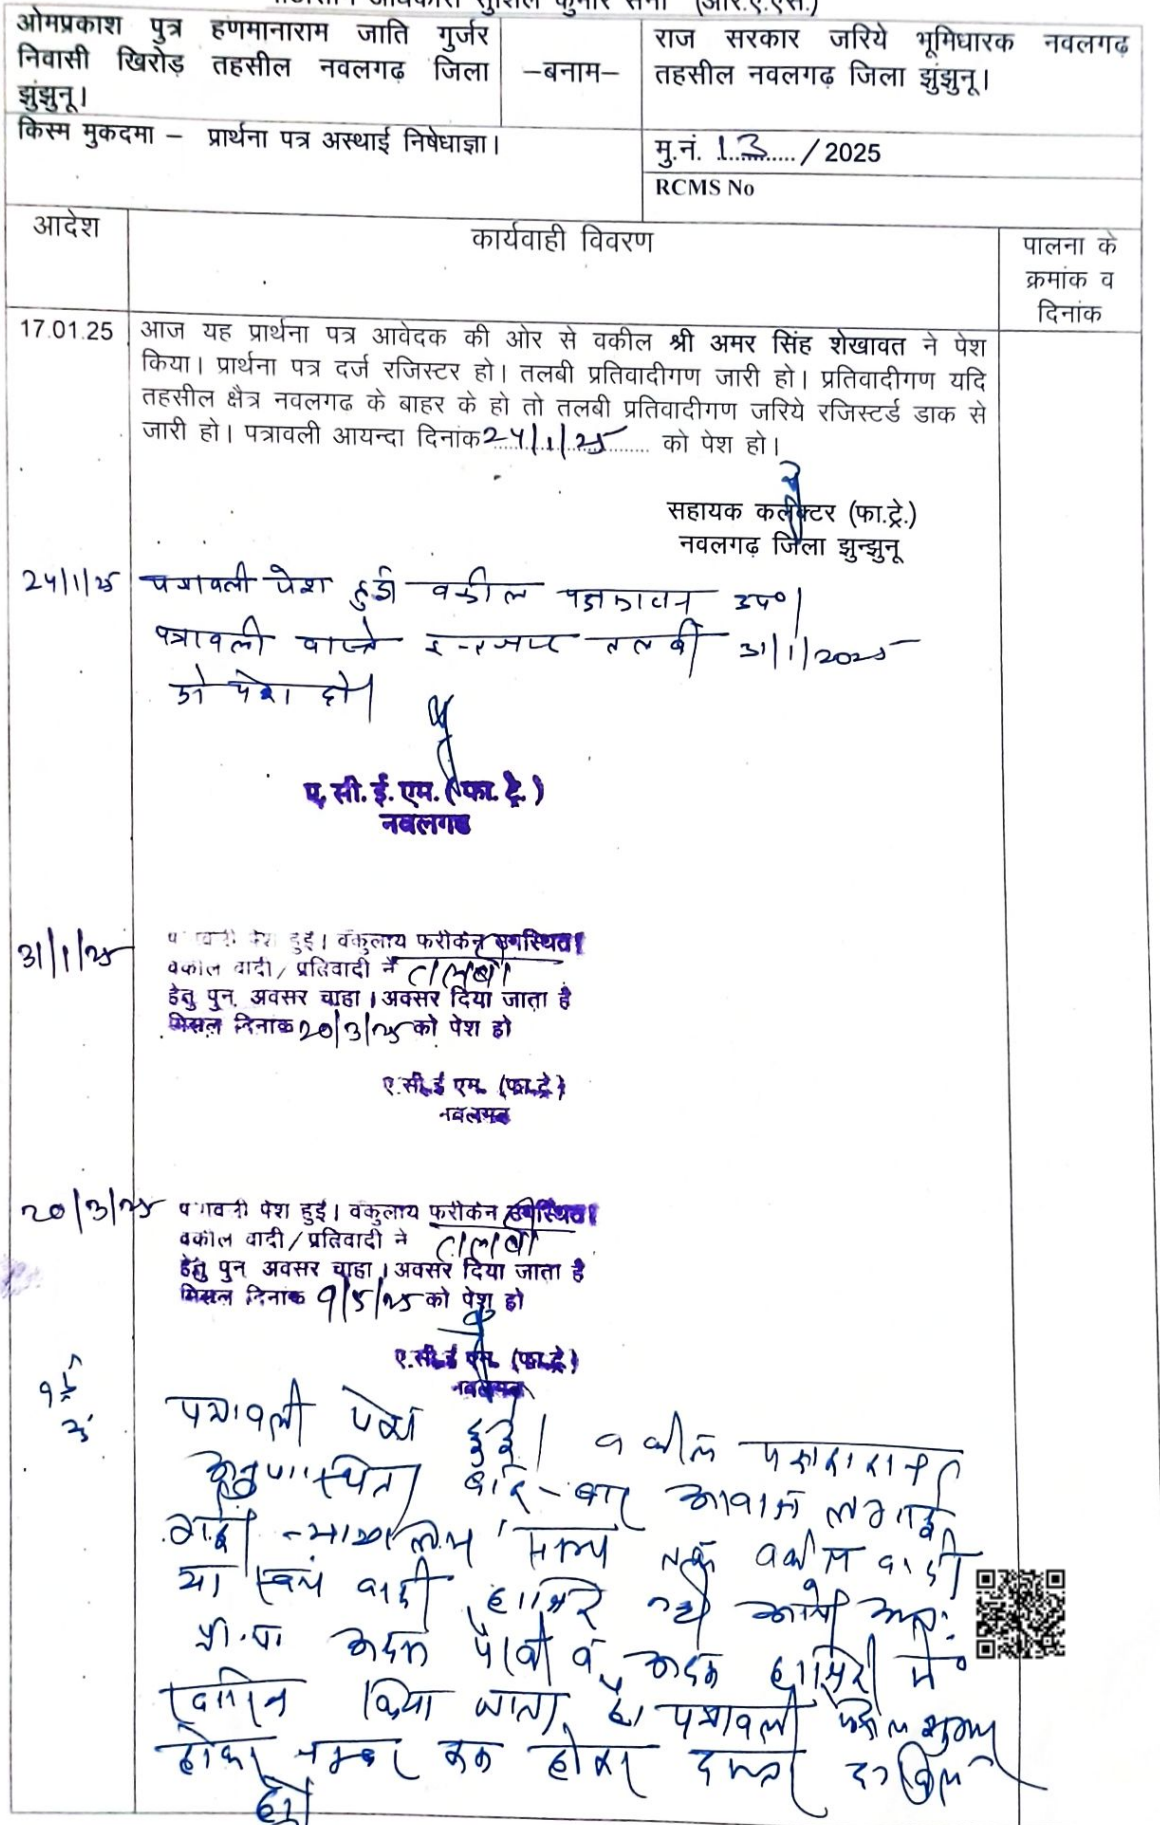 पीठासीन अधिकारी सुशील कुमार सैनी (आर.ए.एस.)
ओमप्रकाश पुत्र हणमानाराम जाति गुर्जर
निवासी खिरोड़ तहसील नवलगढ़ जिला
झुंझुनू।
–बनाम–
राज सरकार जरिये भूमिधारक नवलगढ़
तहसील नवलगढ़ जिला झुंझुनू।
किस्म मुकदमा – प्रार्थना पत्र अस्थाई निषेधाज्ञा।
मु.नं. 13 / 2025
RCMS No
आदेश
कार्यवाही विवरण
पालना के
क्रमांक व
दिनांक
17.01.25
आज यह प्रार्थना पत्र आवेदक की ओर से वकील श्री अमर सिंह शेखावत ने पेश
किया। प्रार्थना पत्र दर्ज रजिस्टर हो। तलबी प्रतिवादीगण जारी हो। प्रतिवादीगण यदि
तहसील क्षैत्र नवलगढ के बाहर के हो तो तलबी प्रतिवादीगण जरिये रजिस्टर्ड डाक से
जारी हो। पत्रावली आयन्दा दिनांक 24/1/25 को पेश हो।
सहायक कलेक्टर (फा.ट्रे.)
नवलगढ़ जिला झुन्झुनू
24/1/25
पत्रावली पेश हुई। वकील पक्षकारान उप०।
पत्रावली वास्ते इन्तजार तलबी 31/1/2025
को पेश हो।
ए. सी. ई. एम. (फा. ट्रे.)
नवलगढ
31/1/25
पत्रावली पेश हुई। वकुलाय फरीकेन उपस्थित।
वकील वादी/प्रतिवादी ने तलबी
हेतु पुन. अवसर चाहा। अवसर दिया जाता है
मिसल दिनांक 20/3/25 को पेश हो
ए.सी.ई एम. (फा.ट्रे)
नवलगढ
20/3/25
पत्रावली पेश हुई। वकुलाय फरीकेन उपस्थित।
वकील वादी/प्रतिवादी ने तलबी
हेतु पुन अवसर चाहा। अवसर दिया जाता है
मिसल दिनांक 9/5/25 को पेश हो
ए.सी.ई एम. (फा.ट्रे)
नवलगढ
9/5
25
पत्रावली पेश हुई। वकील पक्षकारान
अनुपस्थित। बार-बार आवाज लगाई
गई। न्यायालय समय तक वकील वादी
या स्वयं वादी हाजिर नही आये अतः
प्रा.पत्र अदम पैरवी व अदम हाजिरी में
खारिज किया जाता है। पत्रावली फैसल शुमार
होकर नम्बर कम होकर दफ्तर दाखिल
हो।